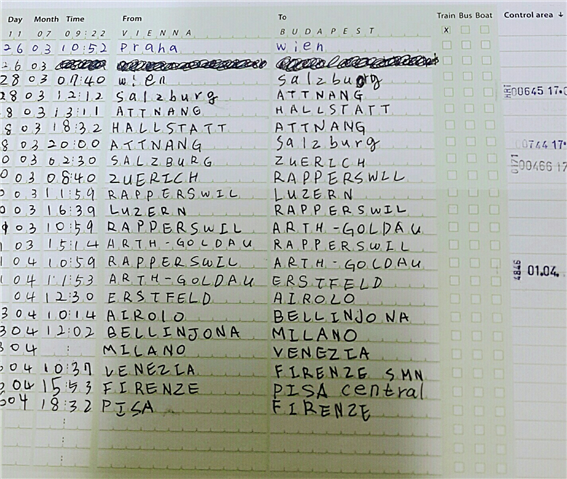 Day Month Time From To Train Bus Boat Control area ↓
11 07 09:22 VIENNA BUDAPEST x
26 03 10:52 Praha Wien
26 03
28 03 07:40 Wien Salzburg
28 03 12:12 Salzburg ATTNANG 00645 17
8 03 13:11 ATTNANG HALLSTATT
8 03 18:32 HALLSTATT ATTNANG
8 03 20:00 ATTNANG Salzburg 0744 17
0 03 02:30 SALZBURG ZUERICH 00466 17
03 08:40 ZUERICH RAPPERSWIL
0 03 11:59 RAPPERSWIL LUZERN
0 03 16:39 LUZERN RAPPERSWIL
03 10:59 RAPPERSWIL ARTH-GOLDAU
1 03 15:14 ARTH-GOLDAU RAPPERSWIL
1 04 10:59 RAPPERSWIL ARTH-GOLDAU 4846 01.04.
04 11:53 ARTH-GOLDAU ERSTFELD
04 12:30 ERSTFELD AIROLO
3 04 10:14 AIROLO BELLINJONA
3 04 12:02 BELLINJONA MILANO
3 04 : MILANO VENEZIA
04 10:37 VENEZIA FIRENZE SMN
04 15:53 FIRENZE PISA central
04 18:32 PISA FIRENZE